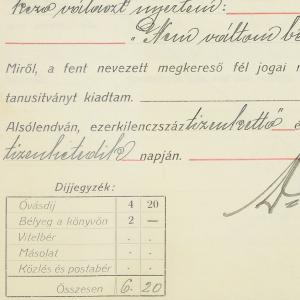 kező választ nyertem:
„Nem váltam be
Miről, a fent nevezett megkereső fél jogai
tanusitványt kiadtam.
Alsólendván, ezerkilenczszáz tizenkettő
tizenhetedik napján.
Dijjegyzék:
Óvásdíj 4 20
Bélyeg a könyvön 2 —
Vitelbér . .
Másolat . .
Közlés és postabér . .
Összesen 6. 20